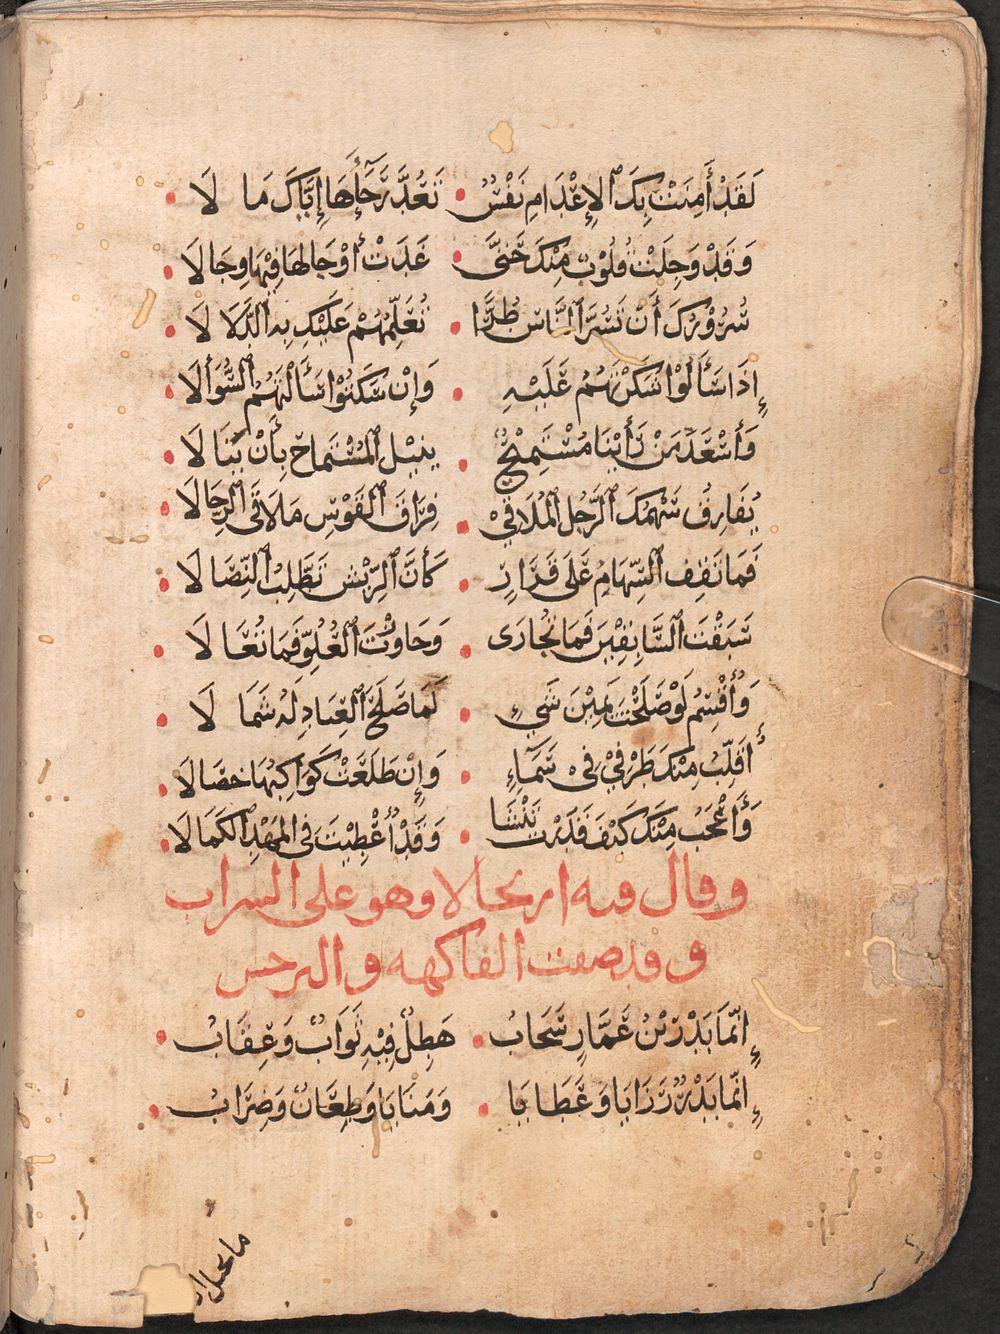 لَقَدْ أَمِنَتْ بِكَ ٱلإِعْدَامِ نَفْسٌ • تَعُدُّ رَجَآءَهَا إِيَّاكَ مَا لَا •
وَقَدْ وَجِلَتْ قُلُوبٌ مِنْكَ حَتَّى • غَدَتْ أَوْجَالُهَا فِيْهَا وِجَالَا •
سُرُوْرُكَ أَنْ تَسُرَّ ٱلنَّاسَ طُرًّا • تُعَلِّمُهُمْ عَلَيْكَ بِهِ ٱلدَّلَا لَا •
إِذَا سَأَلُوْا شَكَرْتَهُمُ عَلَيْهِ • وَإِنْ سَكَتُوْا سَأَلْتَهُمُ ٱلسُّؤَالَا •
وَأَسْعَدُ مَنْ رَأَيْنَا مُسْتَمِيْحٌ • يُنِيْلُ ٱلمُسْتَمَاحَ بِأَنْ يَنَالَا •
يُفَارِقُ سَهْمُكَ ٱلرَّجُلَ ٱلمُلَاقِيْ • فِرَاقَ ٱلقَوْسِ مَا لَاقَى ٱلرِّجَالَا •
فَمَا تَقِفُ ٱلسِّهَامُ عَلَى قَرَارٍ • كَأَنَّ ٱلرِّيْشَ تَطَّلِبُ ٱلنِّصَالَا •
سَبَقْتَ ٱلسَّابِقِيْنَ فَمَا تُجَارَى • وَجَاوَزْتَ ٱلعُلُوَّ فَمَا تُعَا لَا •
وَأُقْسِمُ لَوْ صَلَحْتَ يَمِيْنَ شَيْءٍ • لَمَا صَلَحَ ٱلعِبَادُ لَهُ شَمَا لَا •
أُقَلِّبُ مِنْكَ طَرْفِيْ فِيْ سَمَآءٍ • وَإِنْ طَلَعَتْ كَوَاكِبُهَا خِصَالَا •
وَأَعْجَبُ مِنْكَ كَيْفَ قَدَرْتَ تَنْشَا • وَقَدْ أُعْطِيْتَ فِى المَهْدِ ٱلكَمَالَا •
وقال فيه ارتجالا وهو على الشراب
وقد صفت الفاكهة والنرجس
إِنَّمَا بَدْرُ بْنُ عَمَّارٍ سَحَابُ • هَطِلٌ فِيْهِ ثَوَابٌ وَعِقَابُ •
إِنَّمَا بَدْرٌ رَزَايَا وَعَطَايَا • وَمَنَايَا وَطِعَانٌ وَضِرَابُ •
ما يجيل